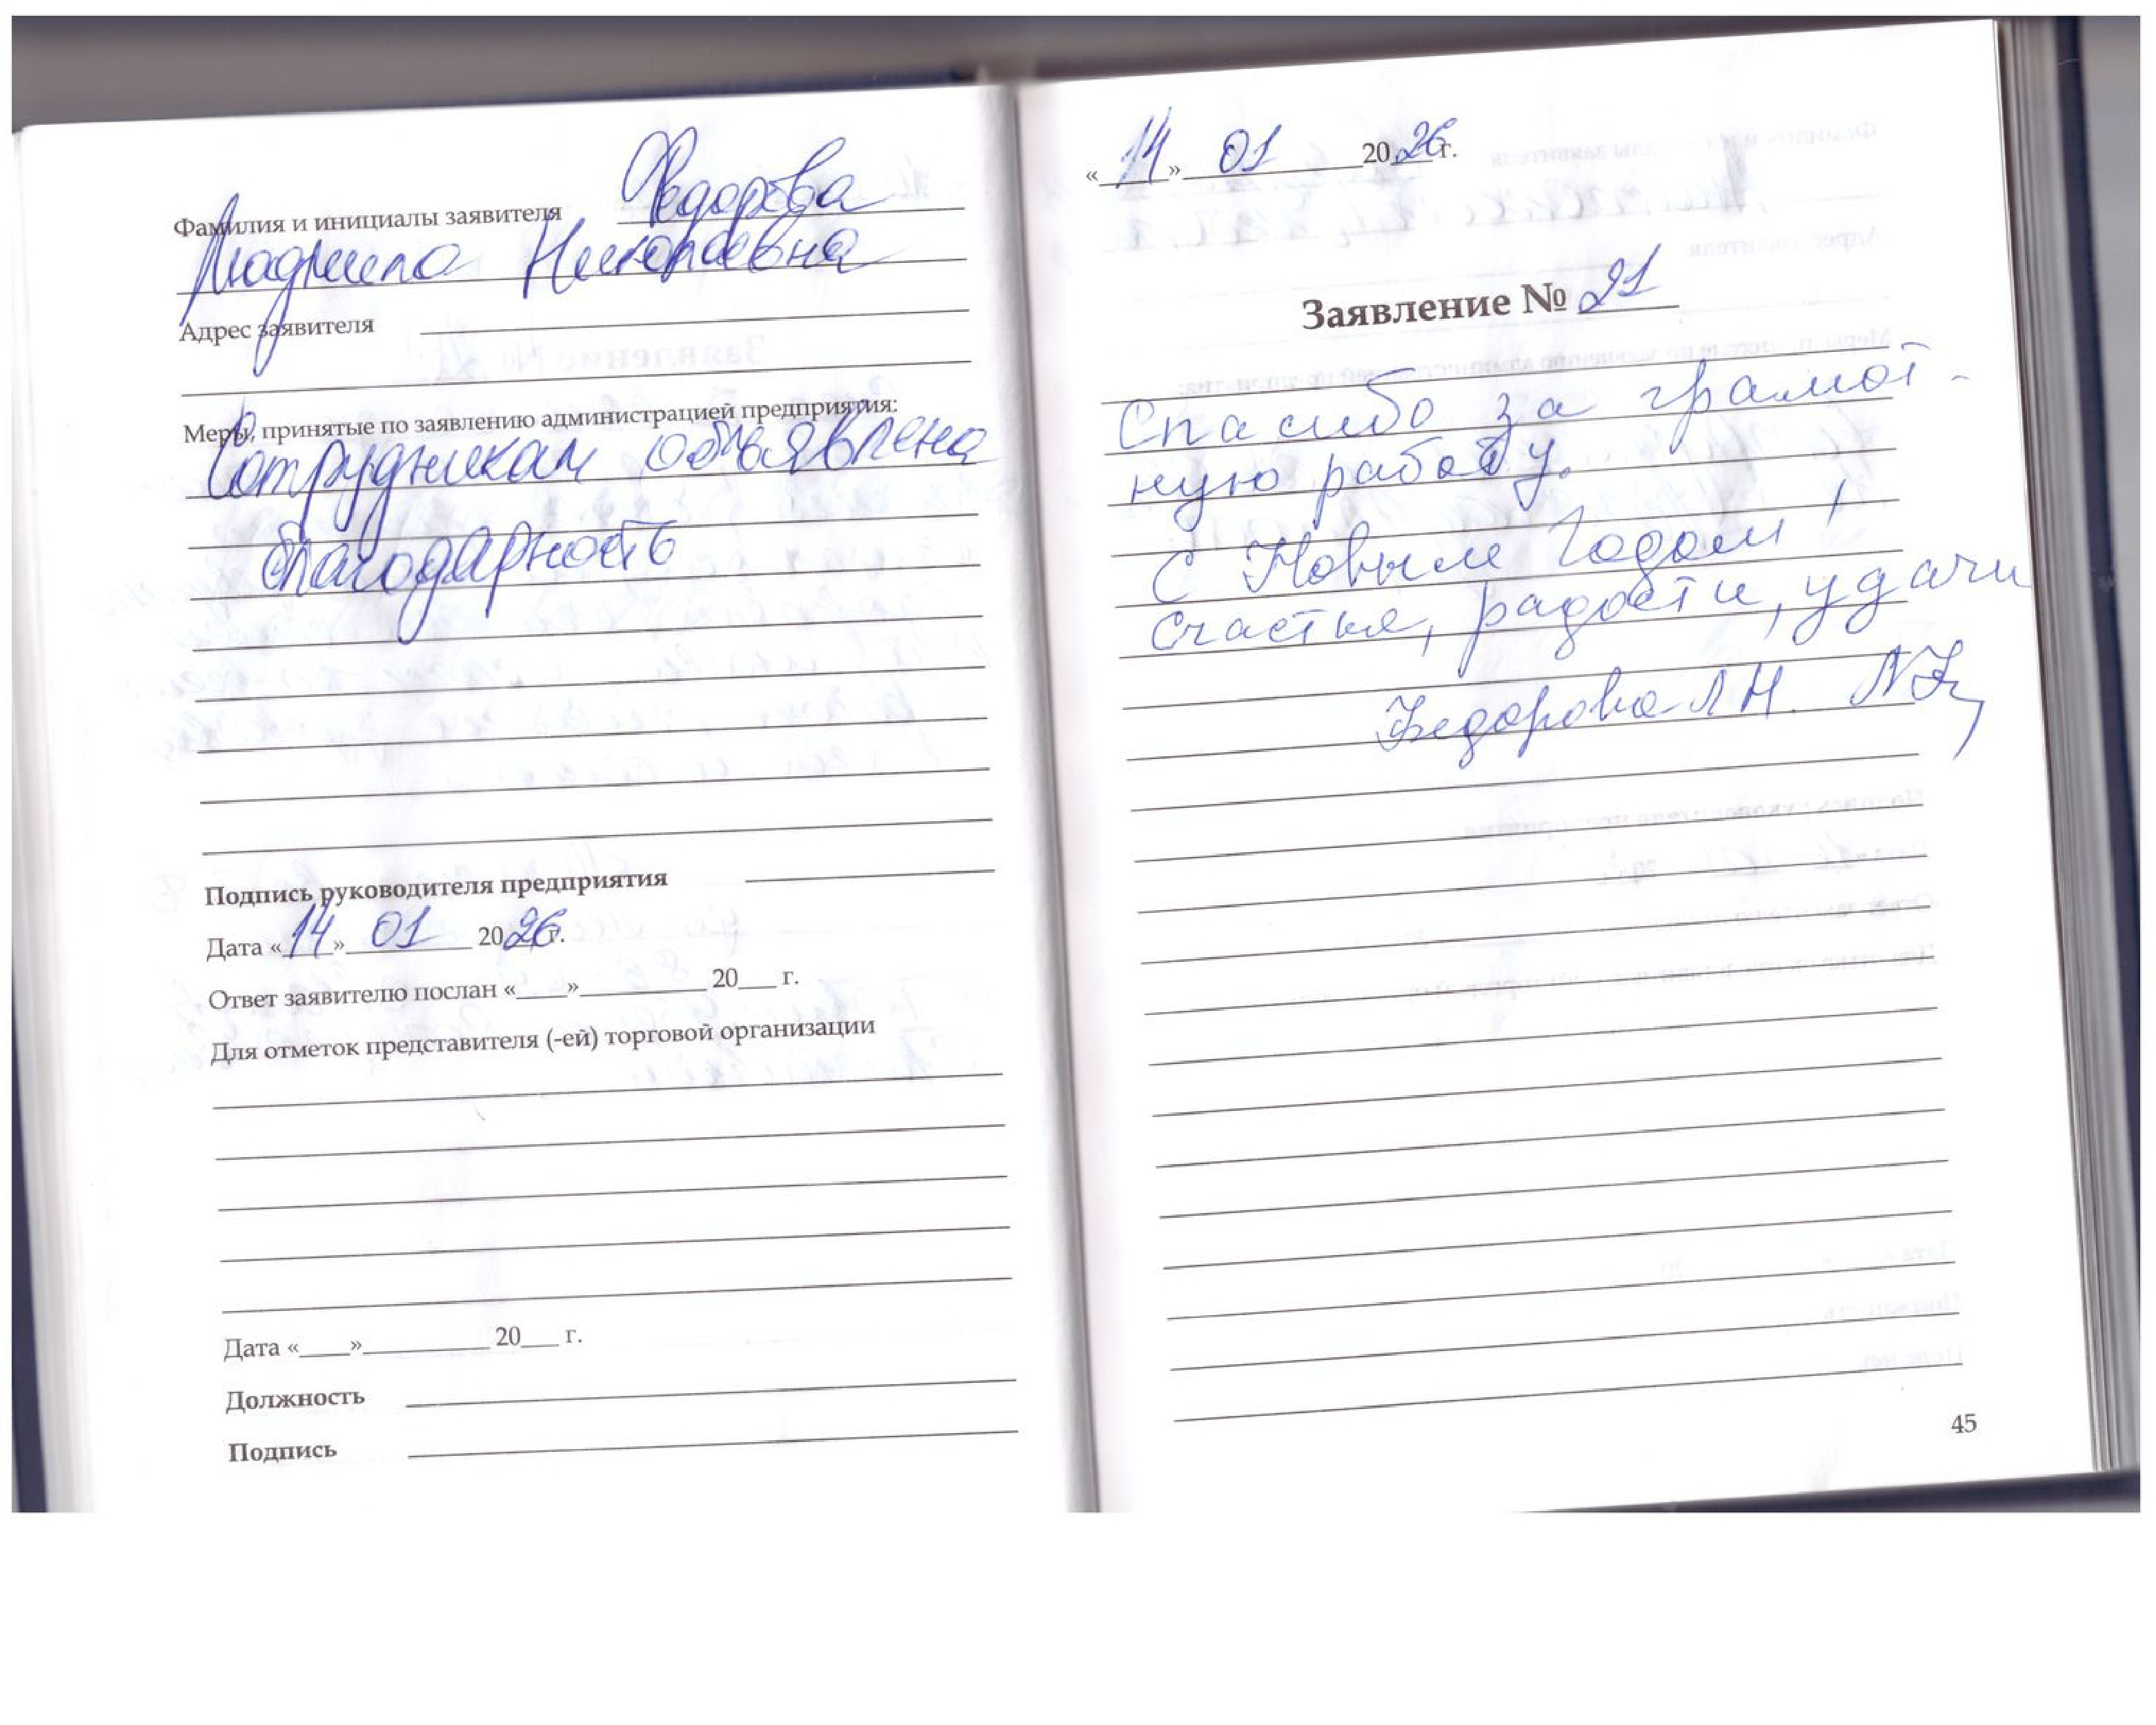 Фамилия и инициалы заявителя Федорова
Людмила Николаевна
Адрес заявителя
Меры, принятые по заявлению администрацией предприятия:
Сотрудникам объявлена
благодарность
Подпись руководителя предприятия
Дата «14» 01 2026 г.
Ответ заявителю послан «____»__________ 20___ г.
Для отметок представителя (-ей) торговой организации
Дата «____»__________ 20___ г.
Должность
Подпись
«14» 01 2026 г.
Заявление № 21
Спасибо за грамот-
ную работу.
С Новым Годом!
Счастья, радости, удачи
Федорова Л Н.
45